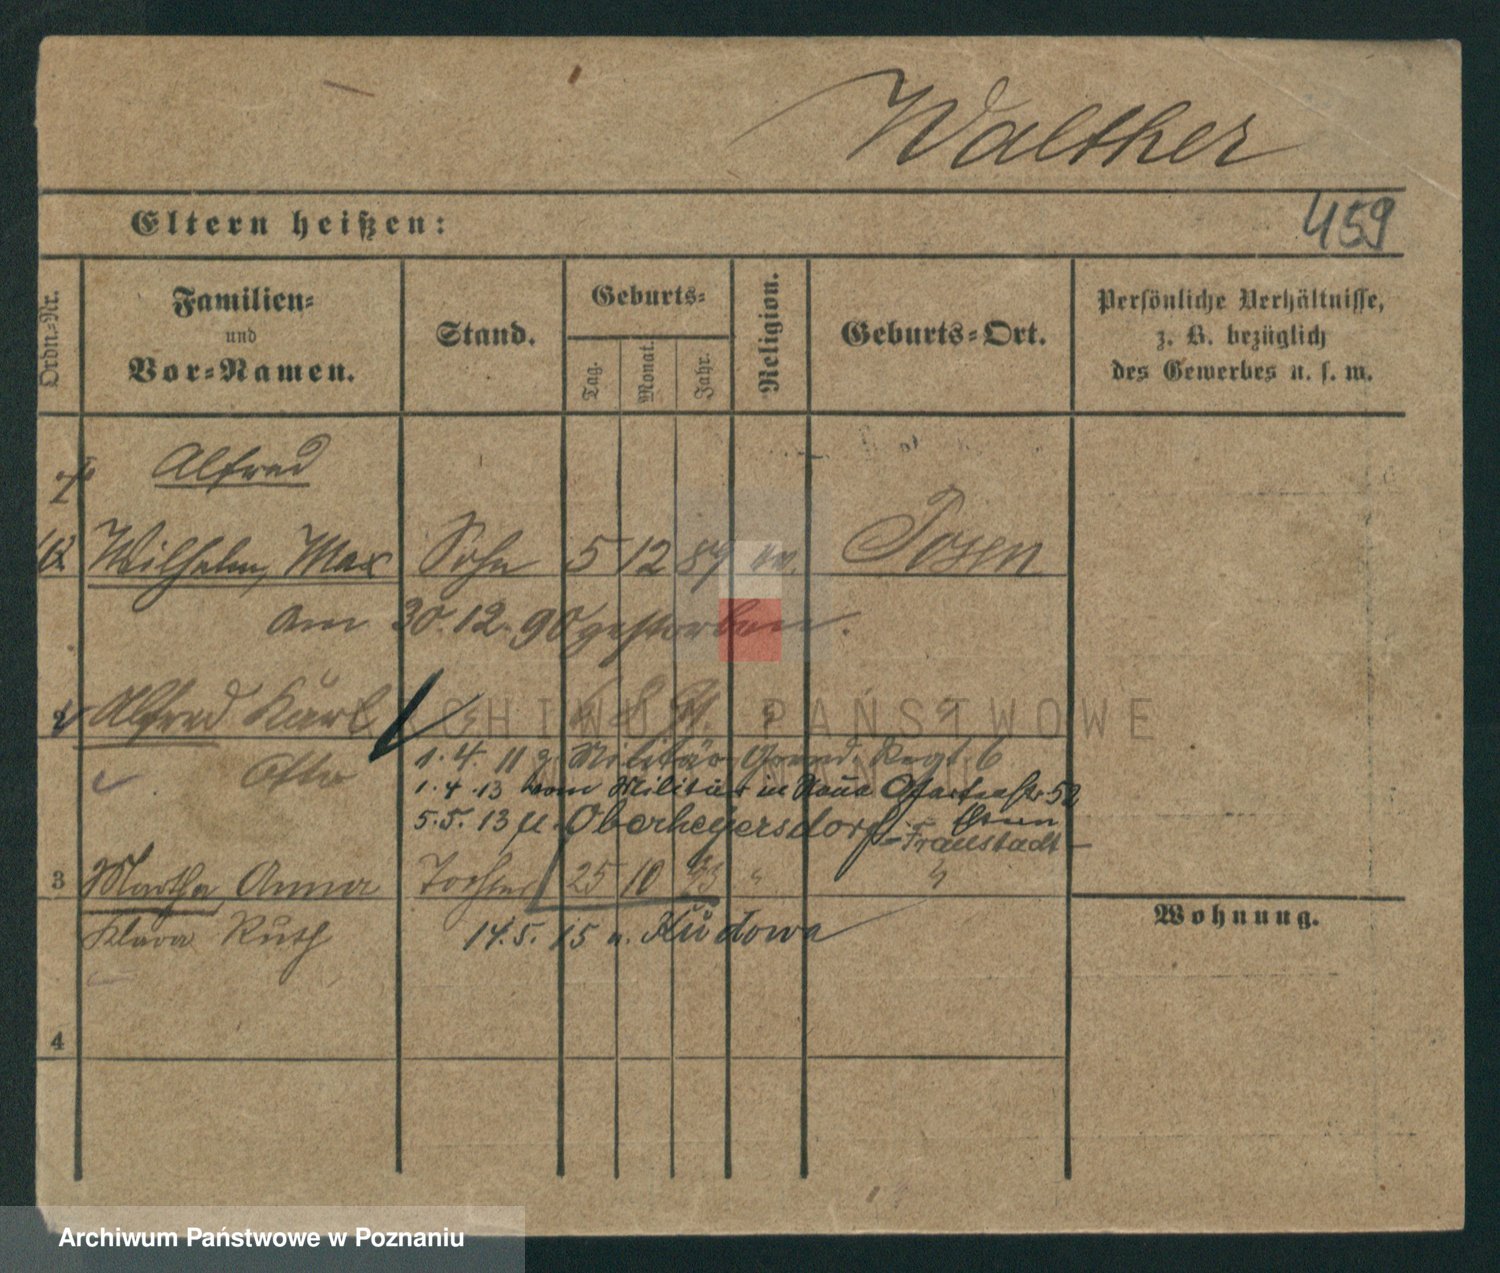 Walther
Eltern heißen:
459
Ordn.-Nr.
Familien-
und
Vor-Namen.
Stand.
Geburts-
Tag.
Monat.
Jahr.
Religion.
Geburts-Ort.
Persönliche Verhältnisse,
z. B. bezüglich
des Gewerbes u. s. w.
Alfred
Wilhelm, Max Sohn 5 12 87 ev. Posen
am 30.12.90 gestorben.
Alfred Karl
Otto
1.4.11 z. Militär Grend. Regt. 6
1.4.13 vom Militär in 52
5.5.13 Oberheyersdorf
-Fraustadt-
3 Martha, Anna Tochter 25 10 93 " "
Klara Ruth
14.5.15 n. Kudowa
4
Wohnung.
ARCHIWUM PAŃSTWOWE
W POZNANIU
Archiwum Państwowe w Poznaniu